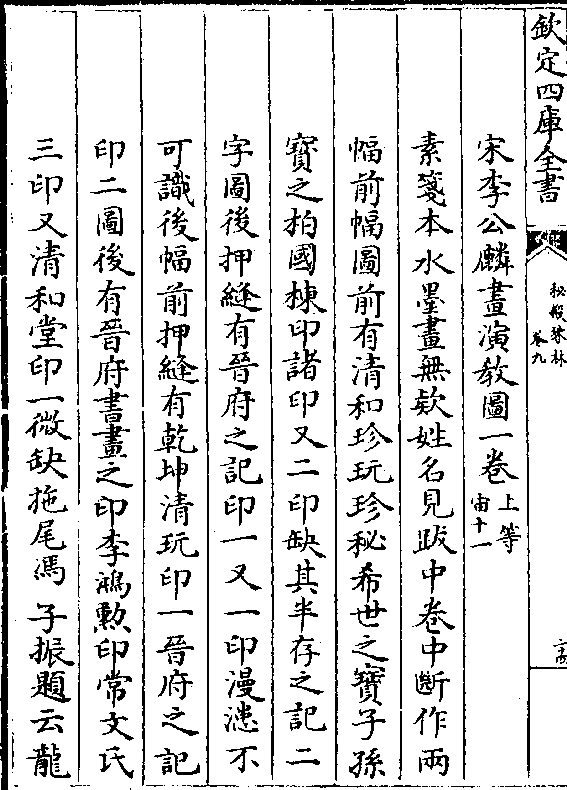 欽定四庫全書
秘殿珠林
卷九
宋李公麟畫演教圖一卷
上等
宙十一
素箋本水墨畫無欵姓名見跋中卷中斷作兩
幅前幅圖前有清和珍玩珍秘希世之寶子孫
寳之柏國棟印諸印又二印缺其半存之記二
字圖後押縫有晉府之記印一又一印漫漶不
可識後幅前押縫有乾坤清玩印一晉府之記
印二圖後有晉府書畫之印李鴻勲印常文氏
三印又清和堂印一微缺拖尾馮子振題云龍